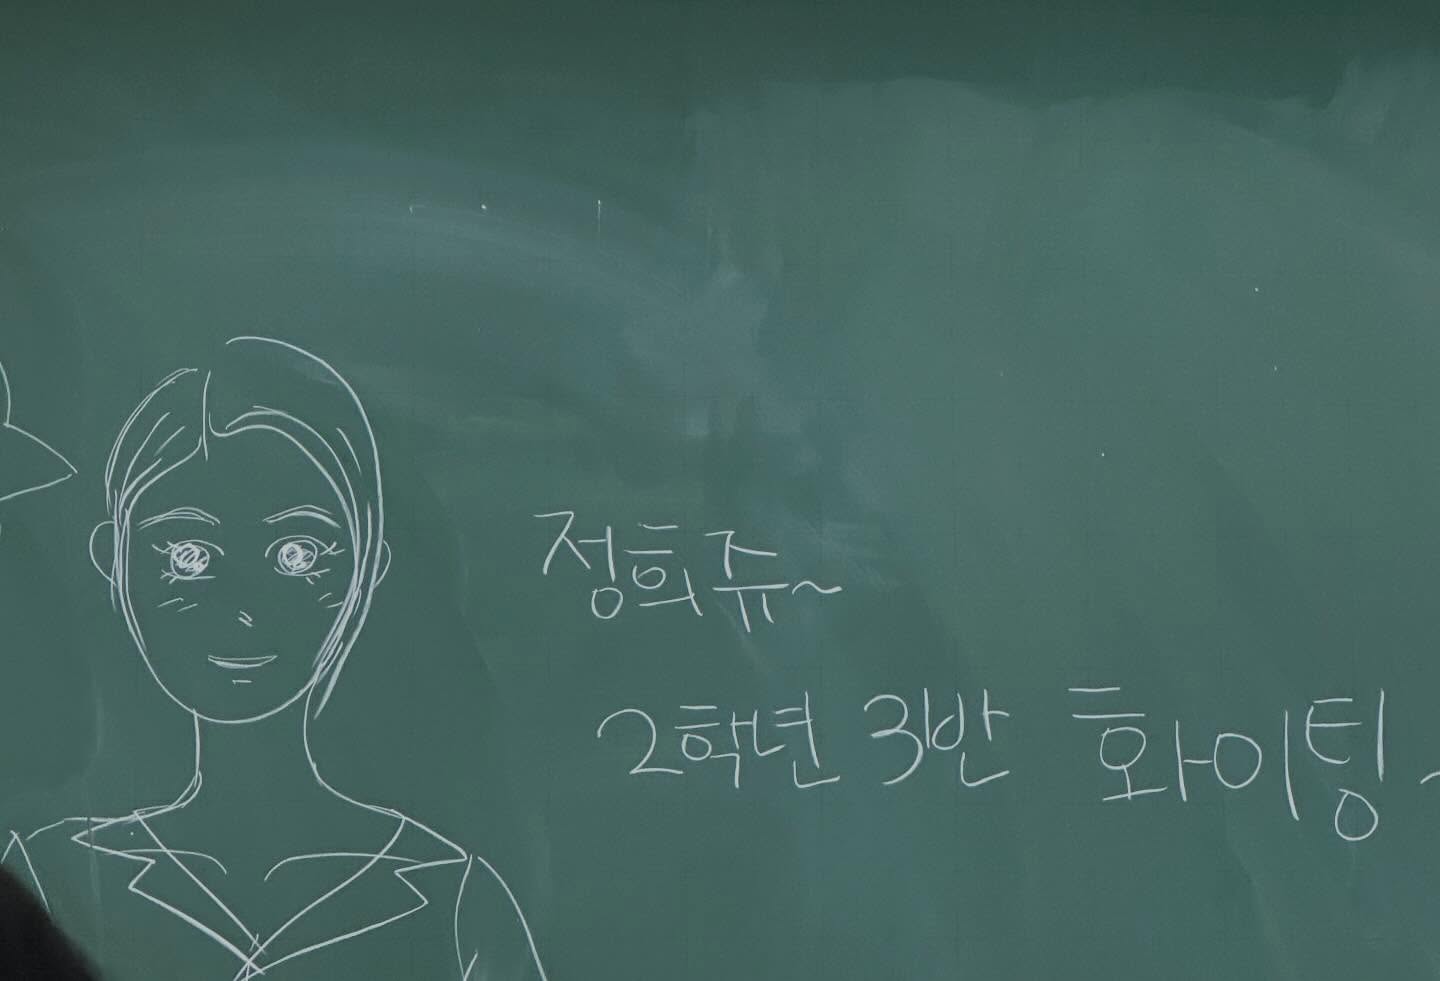 정희쥬~
2학년 3반 화이팅~